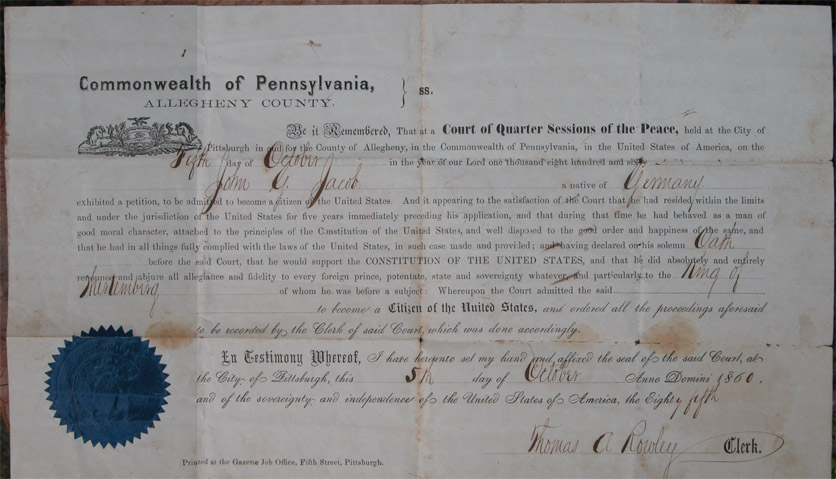 Commonwealth of Pennsylvania,
ALLEGHENY COUNTY.
} ss.
Be it Remembered, That at a Court of Quarter Sessions of the Peace, held at the City of
Pittsburgh in and for the County of Allegheny, in the Commonwealth of Pennsylvania, in the United States of America, on the
Fifth day of October in the year of our Lord one thousand eight hundred and sixty
John G. Jacob a native of Germany
exhibited a petition, to be admitted to become a citizen of the United States. And it appearing to the satisfaction of the Court that he had resided within the limits
and under the jurisdiction of the United States for five years immediately preceding his application, and that during that time he had behaved as a man of
good moral character, attached to the principles of the Constitution of the United States, and well disposed to the good order and happiness of the same, and
that he had in all things fully complied with the laws of the United States, in such case made and provided; and having declared on his solemn Oath
before the said Court, that he would support the CONSTITUTION OF THE UNITED STATES, and that he did absolutely and entirely
renounce and abjure all allegiance and fidelity to every foreign prince, potentate, state and sovereignty whatever, and particularly to the King of
of whom he was before a subject: Whereupon the Court admitted the said
to become a Citizen of the United States, and ordered all the proceedings aforesaid
to be recorded by the Clerk of said Court, which was done accordingly.
In Testimony Whereof, I have hereunto set my hand and affixed the seal of the said Court, at
the City of Pittsburgh, this 5th day of October Anno Domini 1860.
and of the sovereignty and independence of the United States of America, the Eighty fifth
Thomas A Rowley Clerk.
Printed at the Gazette Job Office, Fifth Street, Pittsburgh.